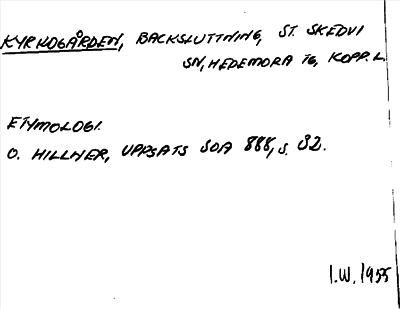 KYRKOGÅRDEN, BACKSLUTTNING, ST. SKEDVI
SN, HEDEMORA TG, KOPP. L.
ETYMOLOGI.
O. HILLNER, UPPSATS SOA 888, S. 32.
I.W. 1955